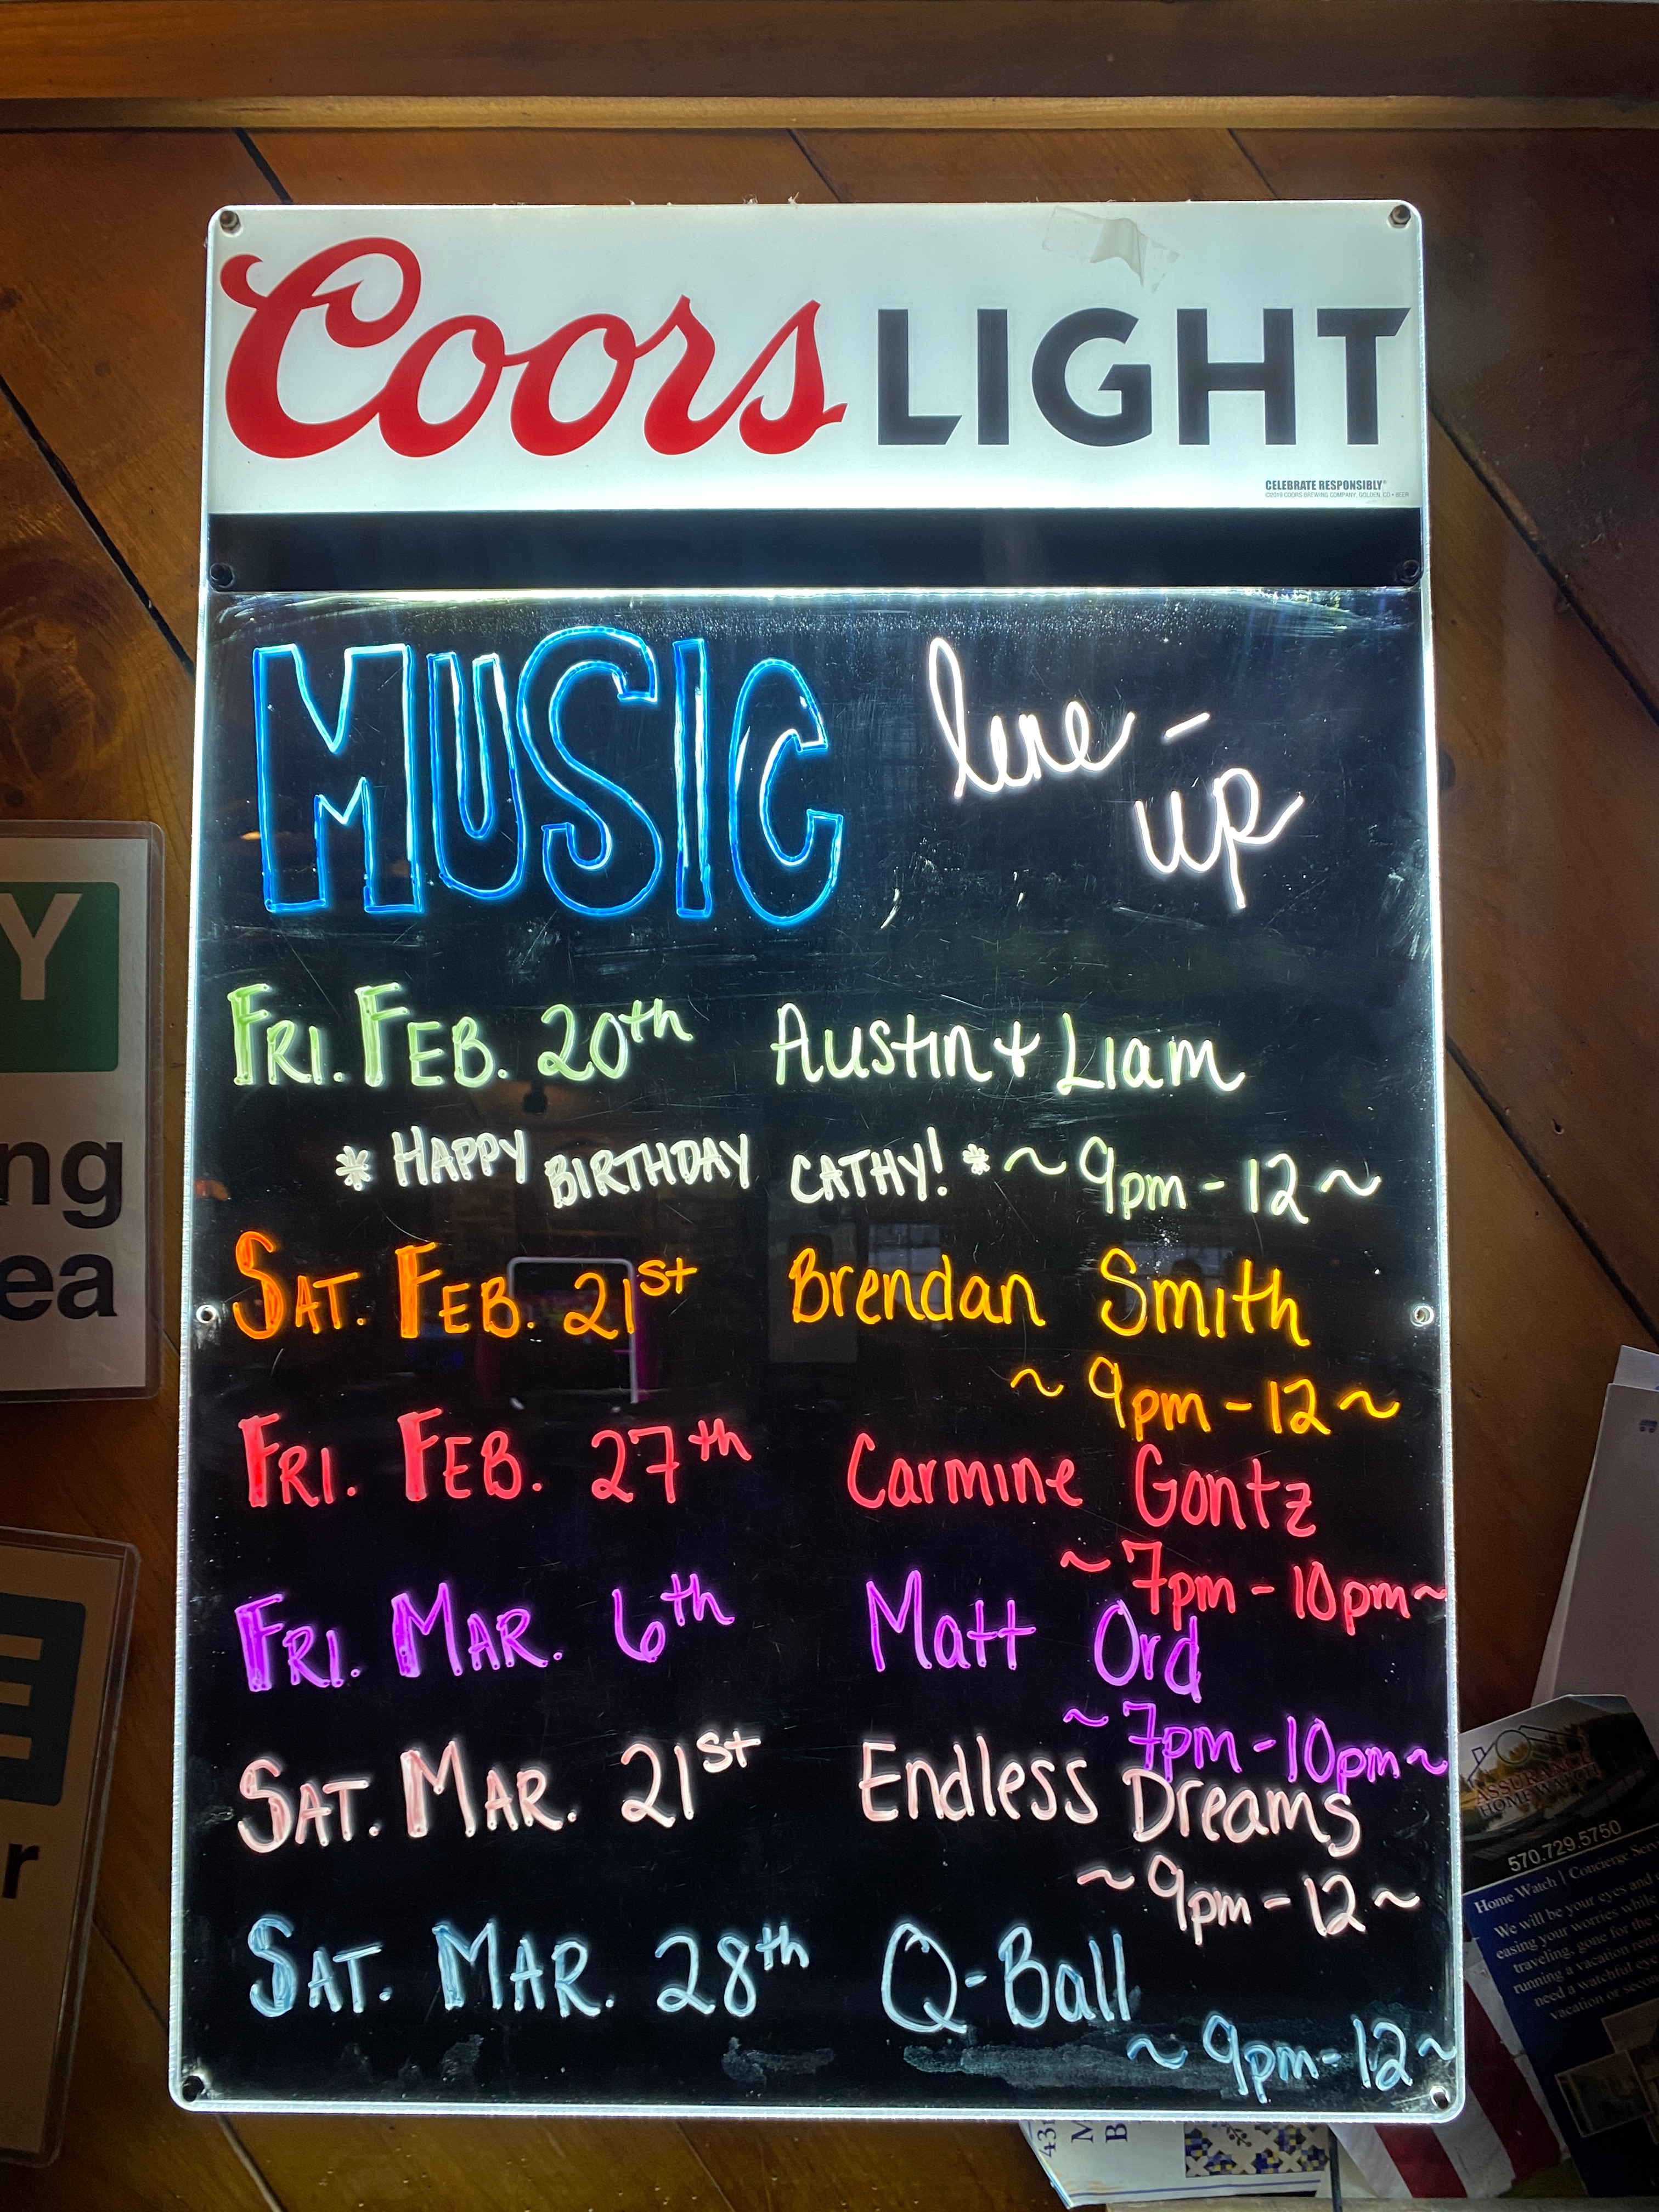 Coors LIGHT
CELEBRATE RESPONSIBLY®
©2019 COORS BREWING COMPANY, GOLDEN, CO • BEER
MUSIC line-
up
FRI. FEB. 20th Austin + Liam
* HAPPY BIRTHDAY CATHY! * ~ 9pm - 12 ~
SAT. FEB. 21st Brendan Smith
~ 9pm - 12 ~
FRI. FEB. 27th Carmine Gontz
~ 7pm - 10pm ~
FRI. MAR. 6th Matt Ord
~ 7pm - 10pm ~
SAT. MAR. 21st Endless Dreams
~ 9pm - 12 ~
SAT. MAR. 28th Q-Ball
~ 9pm - 12 ~
Y
ng
ea
E
r
ASSURANCE
HOME WATCH
570.729.5750
Home Watch | Concierge
We will be your eyes and
easing your worries while
traveling, gone for the
running a vacation
need a watchful eye
vacation or
43
M
B